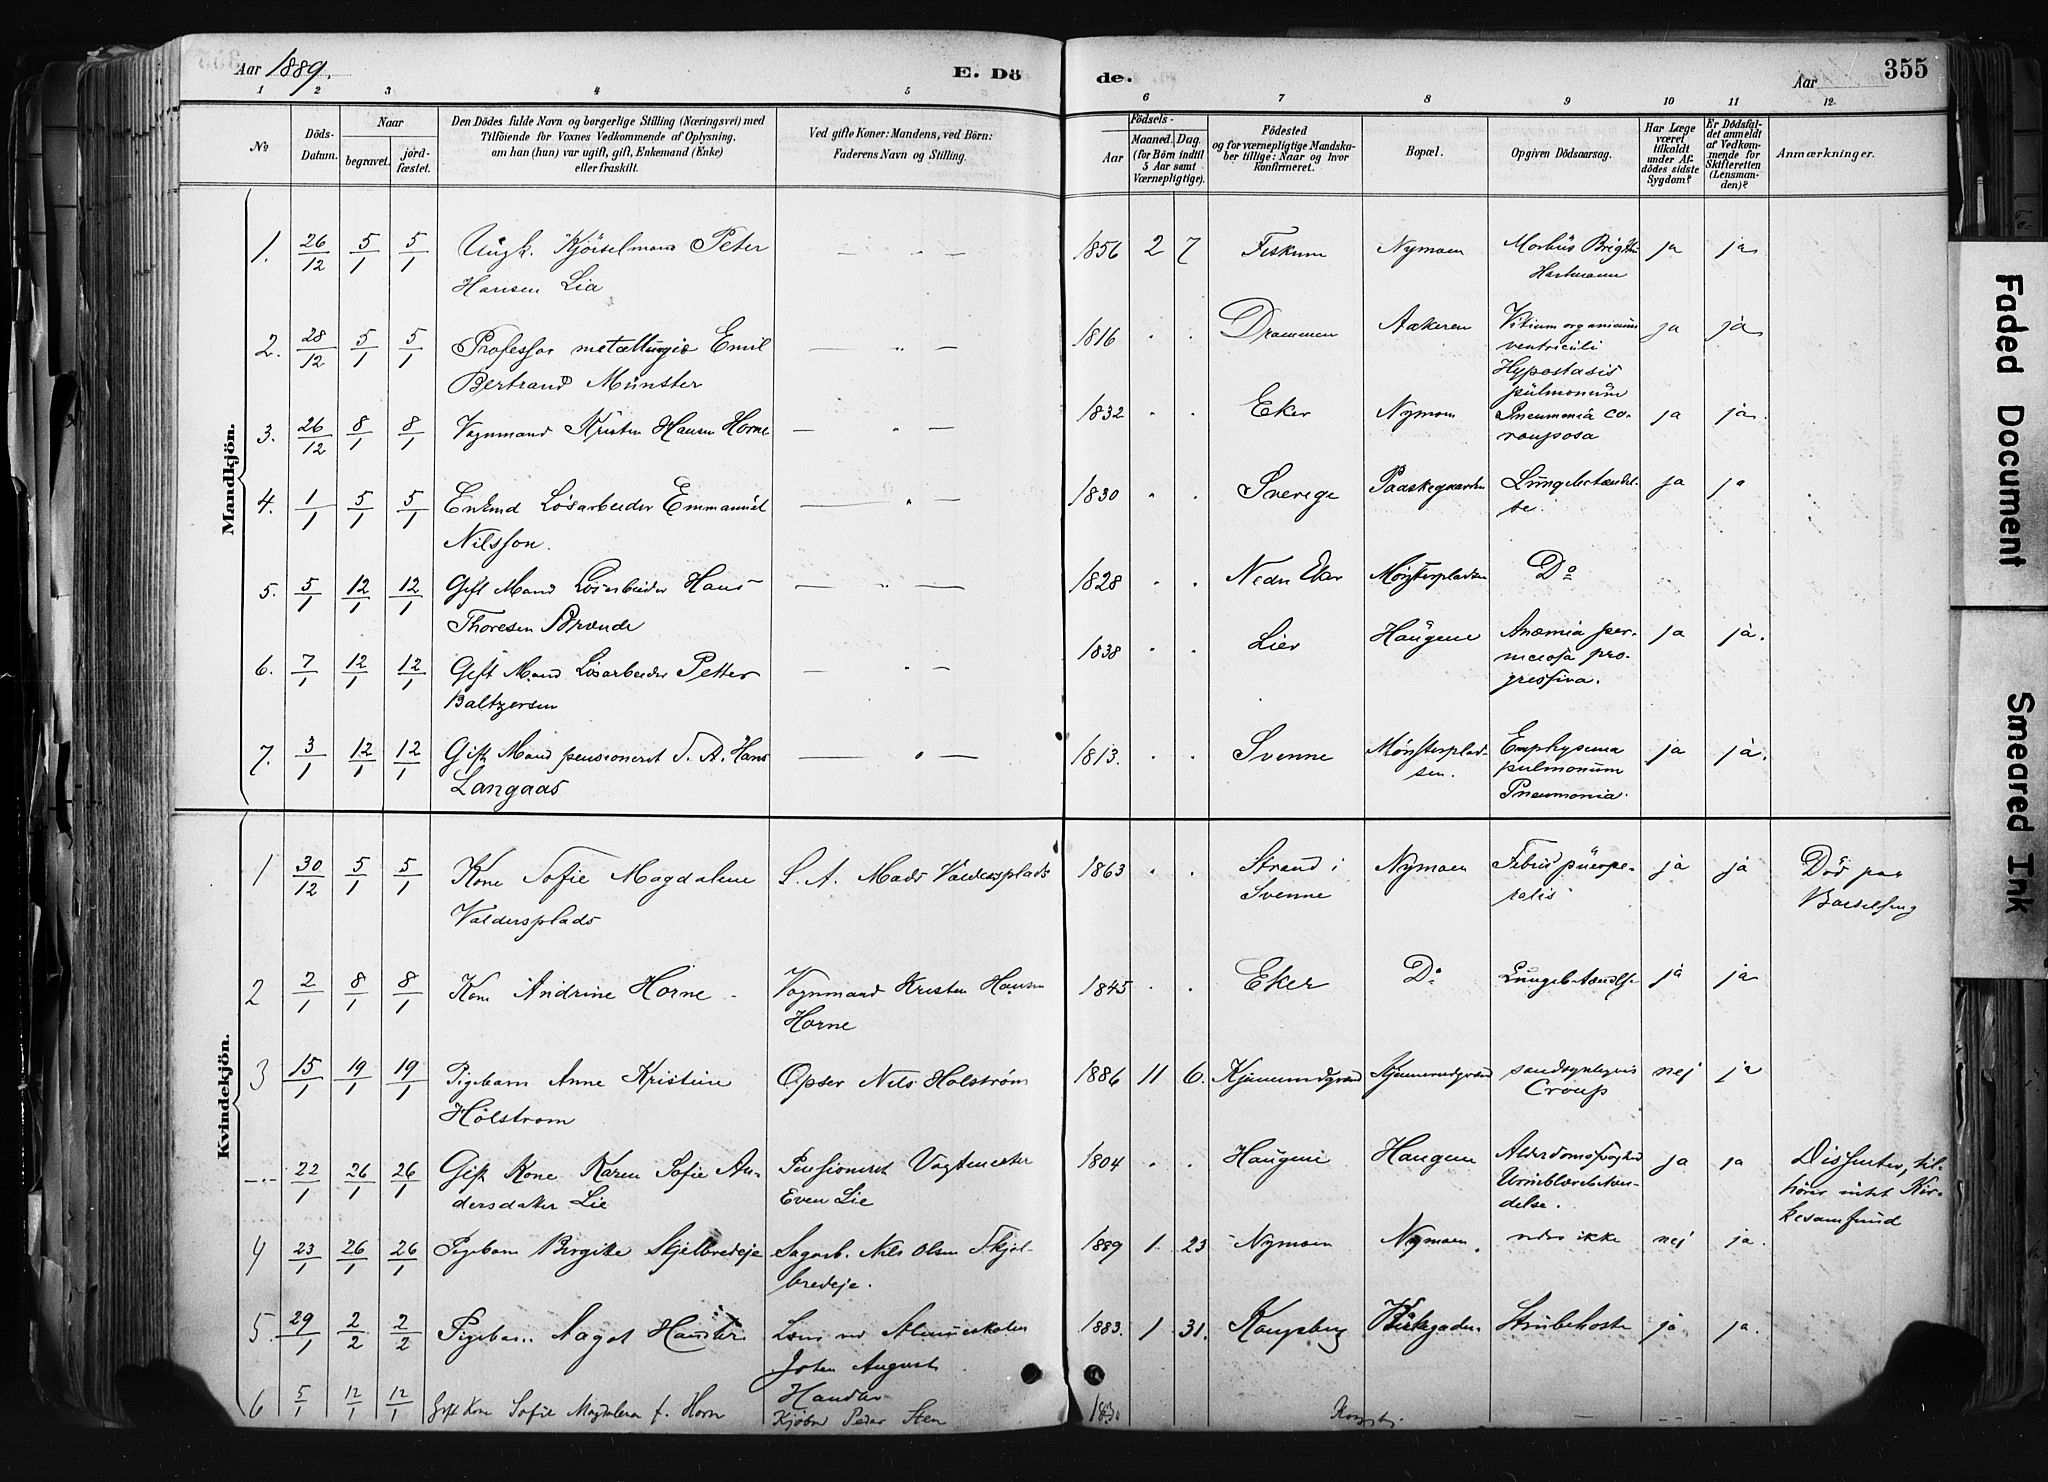 Aar 1889.
E. Döde.
Aar
355
1 2 3 4 5 6 7 8 9 10 11 12.
No
Döds-Datum.
Naar
begravet.
jordfæstet.
Den Dödes fulde Navn og borgerlige Stilling (Næringsvei) med
Tilföiende for Voxnes Vedkommende af Oplysning,
om han (hun) var ugift, gift, Enkemand (Enke)
eller fraskilt.
Ved gifte Koner: Mandens, ved Börn:
Faderens Navn og Stilling.
Födsels-
Aar
Maaned. Dag.
(for Börn indtil
5 Aar samt
Værnepligtige).
Födested
og for værnepligtige Mandskaber tillige: Naar og hvor
konfirmeret.
Bopæl.
Opgiven Dödsaarsag.
Har Læge
været
tilkaldt
under Afdödes sidste
Sygdom?
Er Dödsfaldet anmeldt
af Vedkommende for
Skifteretten
(Lensmanden)?
Anmærkninger.
Mandkjön.
1. 26/12 5/1 5/1 Ungk. Kjörselmand Peter Hansen Lia — " — 1856 2 7 Fiskum Nymoen Morbus Brigthii ja ja
2. 28/12 5/1 5/1 Professor metallurgiæ Emil Bertrand Münster — " — 1816 " " Drammen Aakeren Vitium organicum ventriculi Hypostasis pulmonum ja ja
3. 26/12 8/1 8/1 Vognmand Kristen Hansen Horne — " — 1832 " " Eker Nymoen Pneumonia ja ja.
4. 1/1 5/1 5/1 Enkmd Løsarbeider Emmanuel Nilsson. — " — 1830 " " Sverige Paaskegaarden Lungebetændelse. ja ja
5. 5/1 12/1 12/1 Gift Mand Løsarbeider Hans Thoresen — " — 1828 " " Nedre Eker Mønsterpladsen Do
6. 7/1 12/1 12/1 Gift Mand Løsarbeider Petter Baltzersen — " — 1838 " " Lier Haugene Anæmia perniciosa progressiva. ja ja.
7. 3/1 12/1 12/1 Gift Mand pensioneret S. A. Hans Langaas — " — 1813. " " Svenne Mønsterpladsen. Emphysema pulmonum Pneumonia. ja ja.
Kvindekjön.
1 30/12 5/1 5/1 Kone Sofie Magdalene Valdersplads S. A. Mads Valdersplads 1863 " " Strand i Svenne Nymoen Febris puerperalis ja ja Död paa Barselseng
2 2/1 8/1 8/1 Kone Andrine Horne Vognmand Kristen Hansen Horne 1845 " " Eker Do Lungebetændelse ja ja
3 15/1 19/1 19/1 Pigebarn Anne Kristine Holstrom Opser Nils Holström 1886 11 6. Kjennerudgrænd Kjennerudgrænd sandsynligvis Croup nej ja
—"— 22/1 26/1 26/1 Gift Kone Karen Sofie Andersdatter Lie Pensioneret Vagtmester Even Lie 1804 " " Haugene Haugene Alderdomssvaghed Urinblærebetændelse. ja ja Dissenter, tilhører intet Kirkesamfund
4 23/1 26/1 26/1 Pigebarn Birgitte Skjelbredeje Sagarb. Nils Olsen Skjelbredeje. 1889 1 23 Nymoen Nymoen vides ikke nej ja.
5. 29/1 2/2 2/2 Pigebarn Aagot Handler Lærer ved Almueskolen Johan August Handler 1883. 1 31. Kongsberg Kirkegaden Strubehoste ja ja.
6 5/1 12/1 12/1 Gift Kone Sofie Magdalena f. Horn Kjöbm Peder Steen 1830 — - -
Faded Document
Smeared Ink